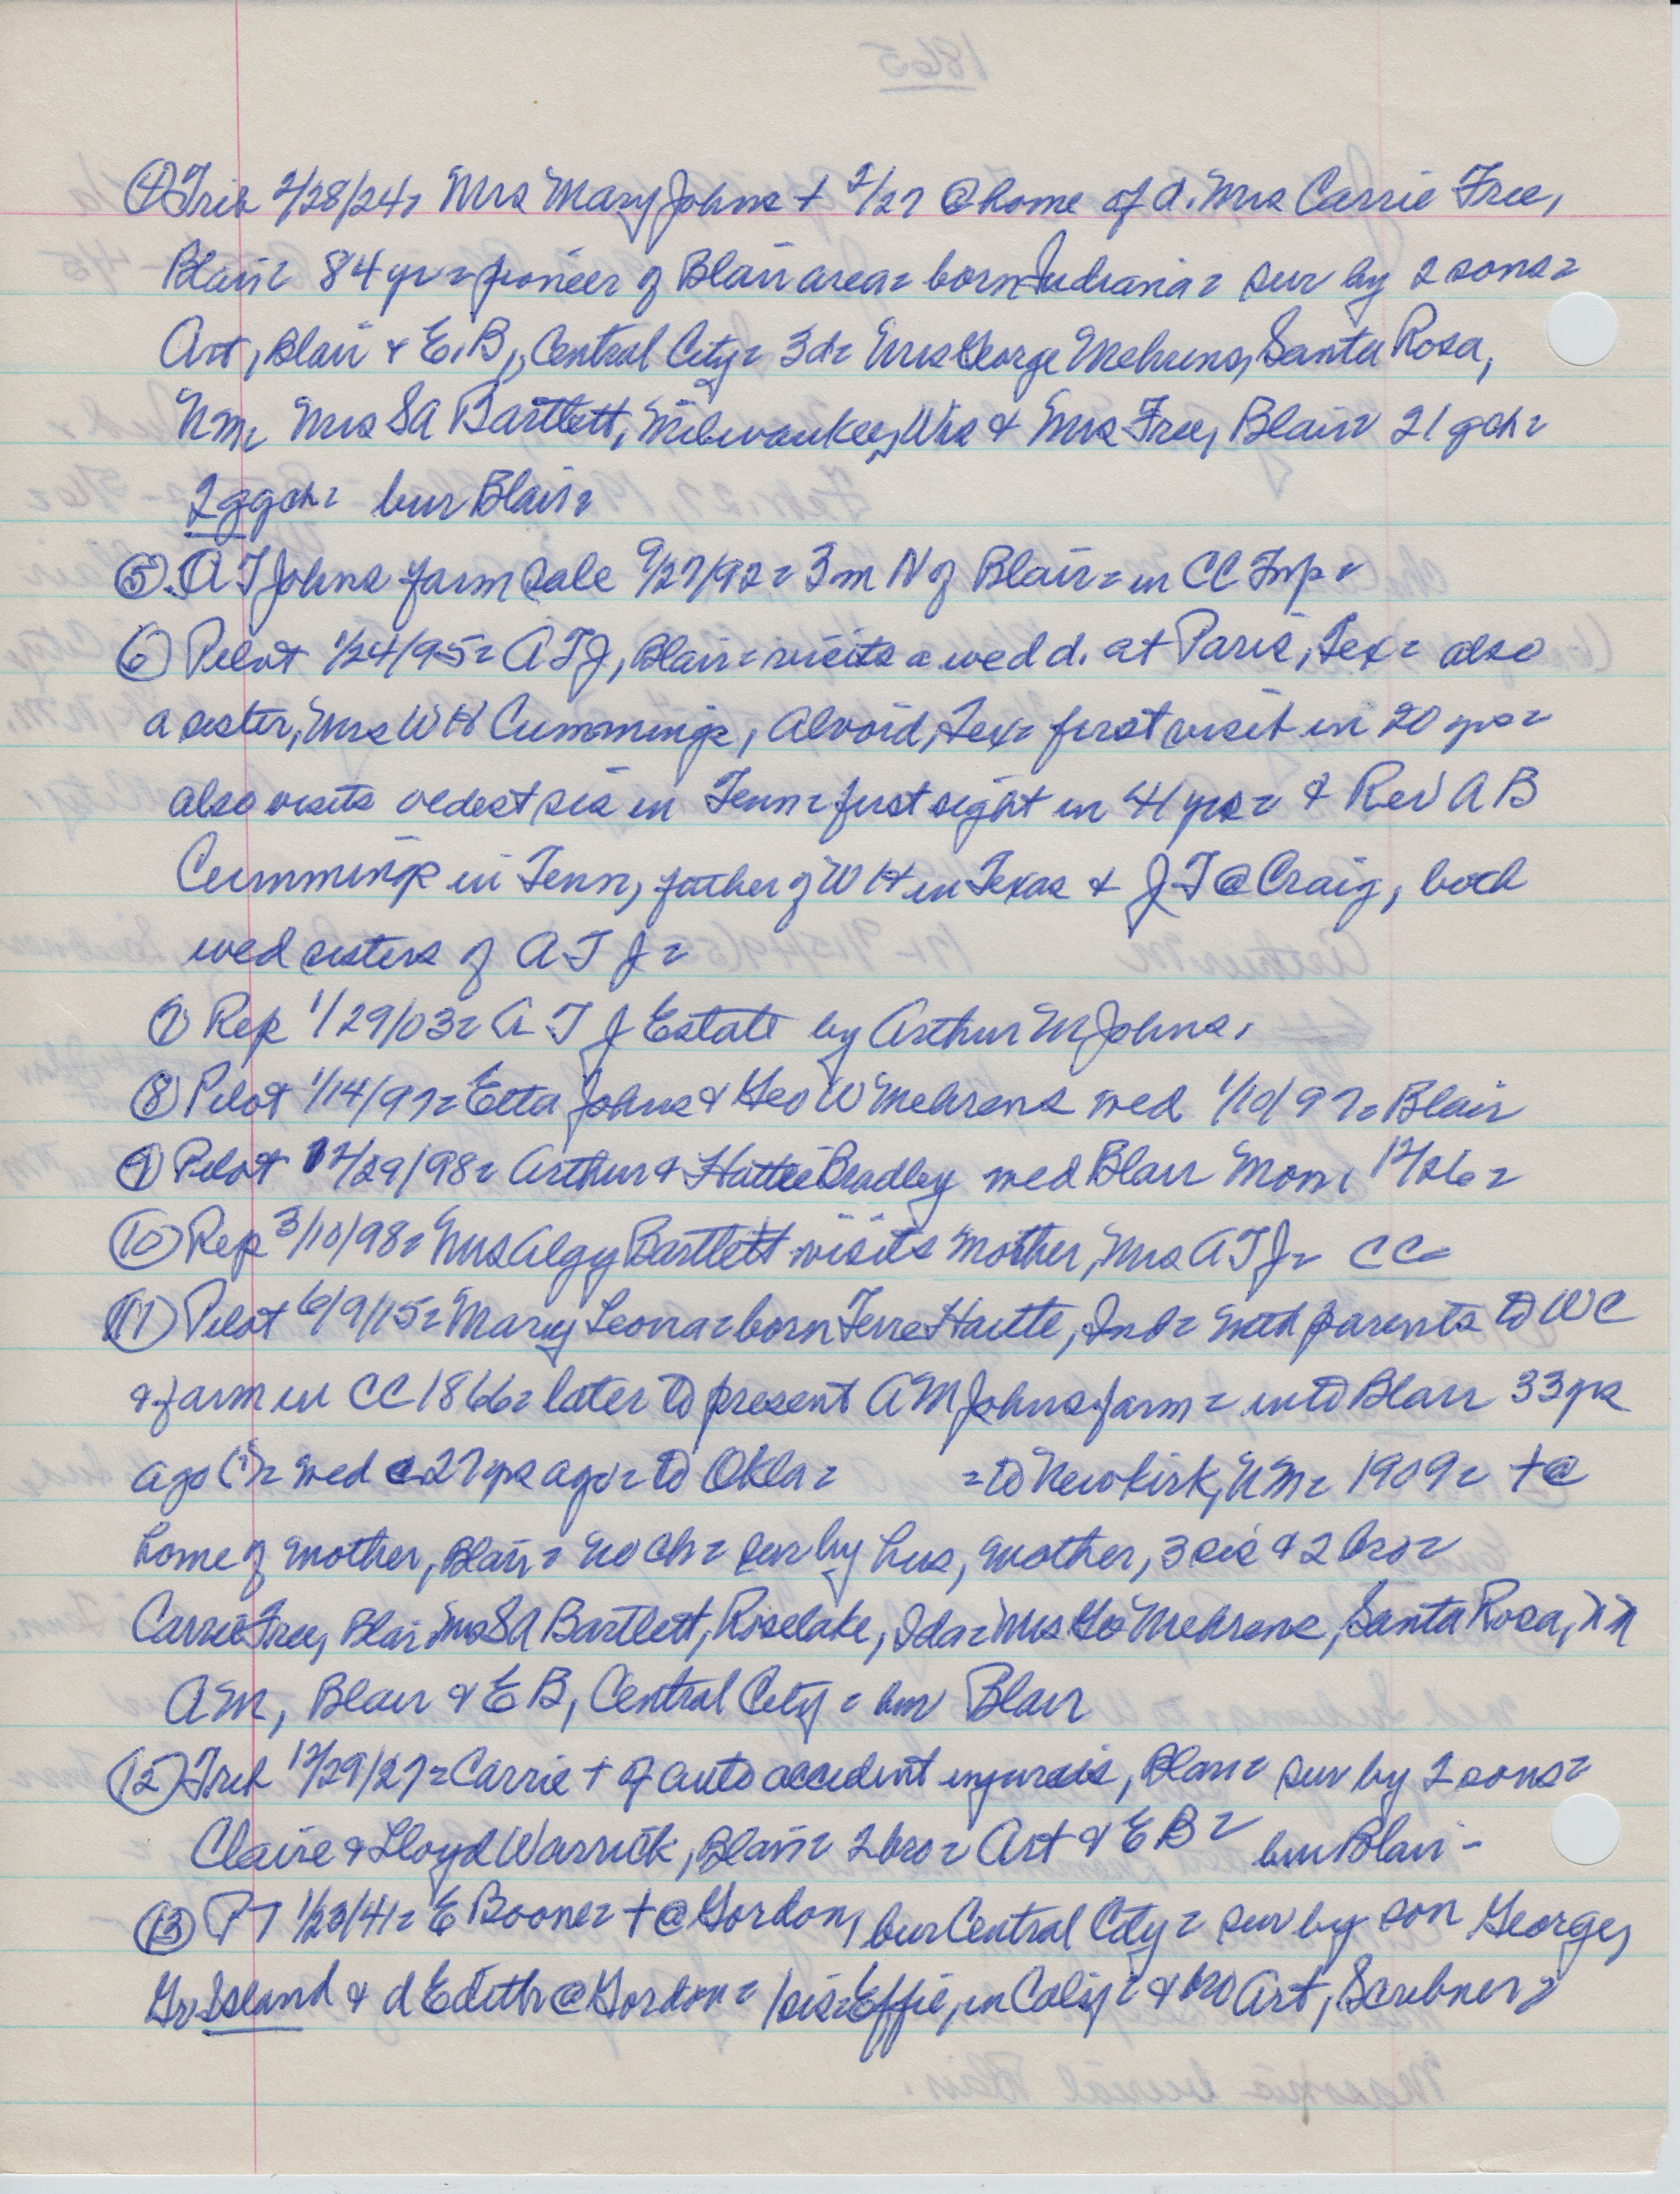 ④ Trib 2/28/24= Mrs Mary Johns + 2/27 @ home of d. Mrs Carrie Free,
Blair= 84 yr= pioneer of Blair area= born Indiana= sur by 2 sons=
Art, Blair & E.B., Central City= 3d= Mrs George Mehrens, Santa Rosa,
NM, Mrs SA Bartlett, Milwaukee, Wis & Mrs Free, Blair= 21 gch=
2 ggch= bur Blair=
⑤ A T Johns farm sale 9/27/92= 3 m N of Blair= in CC Twp=
⑥ Pilot 1/24/95= A T J, Blair= visits a wed d. at Paris, Tex= also
a sister, Mrs W H Cummings, Alvord, Tex= first visit in 20 yrs=
also visits oldest sis in Tenn= first sight in 41 yrs= & Rev A B
Cummings in Tenn, father of W H in Texas & J T @ Craig, both
wed sisters of A T J=
⑦ Rep 1/29/03= A T J Estate by Arthur M Johns,
⑧ Pilot 1/14/97= Etta Johns & Geo W Mehrens wed 1/10/97= Blair
⑨ Pilot 12/29/98= Arthur & Hattie Bradley wed Blair Mon, 12/26=
⑩ Rep 3/10/98= Mrs Algy Bartlett visits mother, Mrs A T J= CC=
⑪ Pilot 6/9/15= Mary Leona= born Terre Haute, Ind= with parents to WC
& farm in CC 1866= later to present A M Johns farm= into Blair 33 yrs
ago (?)= wed c 27 yrs ago= to Okla= =to Newkirk, NM= 1909= +@
home of mother, Blair= no ch= sur by hus, mother, 3 sis & 2 bro=
Carrie Free, Blair Mrs SA Bartlett, Roselake, Ida= Mrs Geo Mehrens, Santa Rosa, NM
AM, Blair & E B, Central City= bur Blair
⑫ Trib 12/29/27= Carrie + of auto accident injuries, Blair= sur by 2 sons=
Claire & Lloyd Warrick, Blair= 2 bro= Art & E B= bur Blair-
⑬ PT 1/23/41= E Boone= +@ Gordon, bur Central City= sur by son George,
Gr Island & d Edith @ Gordon= 1 sis= Effie, in Calif= & bro Art, Scribner=